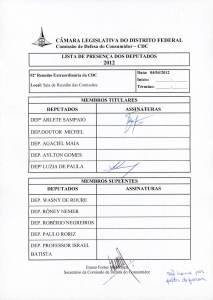 CÂMARA LEGISLATIVA DO DISTRITO FEDERAL
Comissão de Defesa do Consumidor – CDC
LISTA DE PRESENÇA DOS DEPUTADOS
2012
02ª Reunião Extraordinária da CDC
Data: 04/04/2012
Início:
Local: Sala de Reunião das Comissões
Término:
MEMBROS TITULARES
DEPUTADOS ASSINATURAS
DEPª ARLETE SAMPAIO
DEP. DOUTOR MICHEL
DEP. AGACIEL MAIA
DEP. AYLTON GOMES
DEPª LUZIA DE PAULA
MEMBROS SUPLENTES
DEPUTADOS ASSINATURAS
DEP. WASNY DE ROURE
DEP. RÔNEY NEMER
DEP. ROBÉRIO NEGREIROS
DEP. PAULO RORIZ
DEP. PROFESSOR ISRAEL
BATISTA
Secretário da Comissão de Defesa do Consumidor
não houve por
falta de quorum